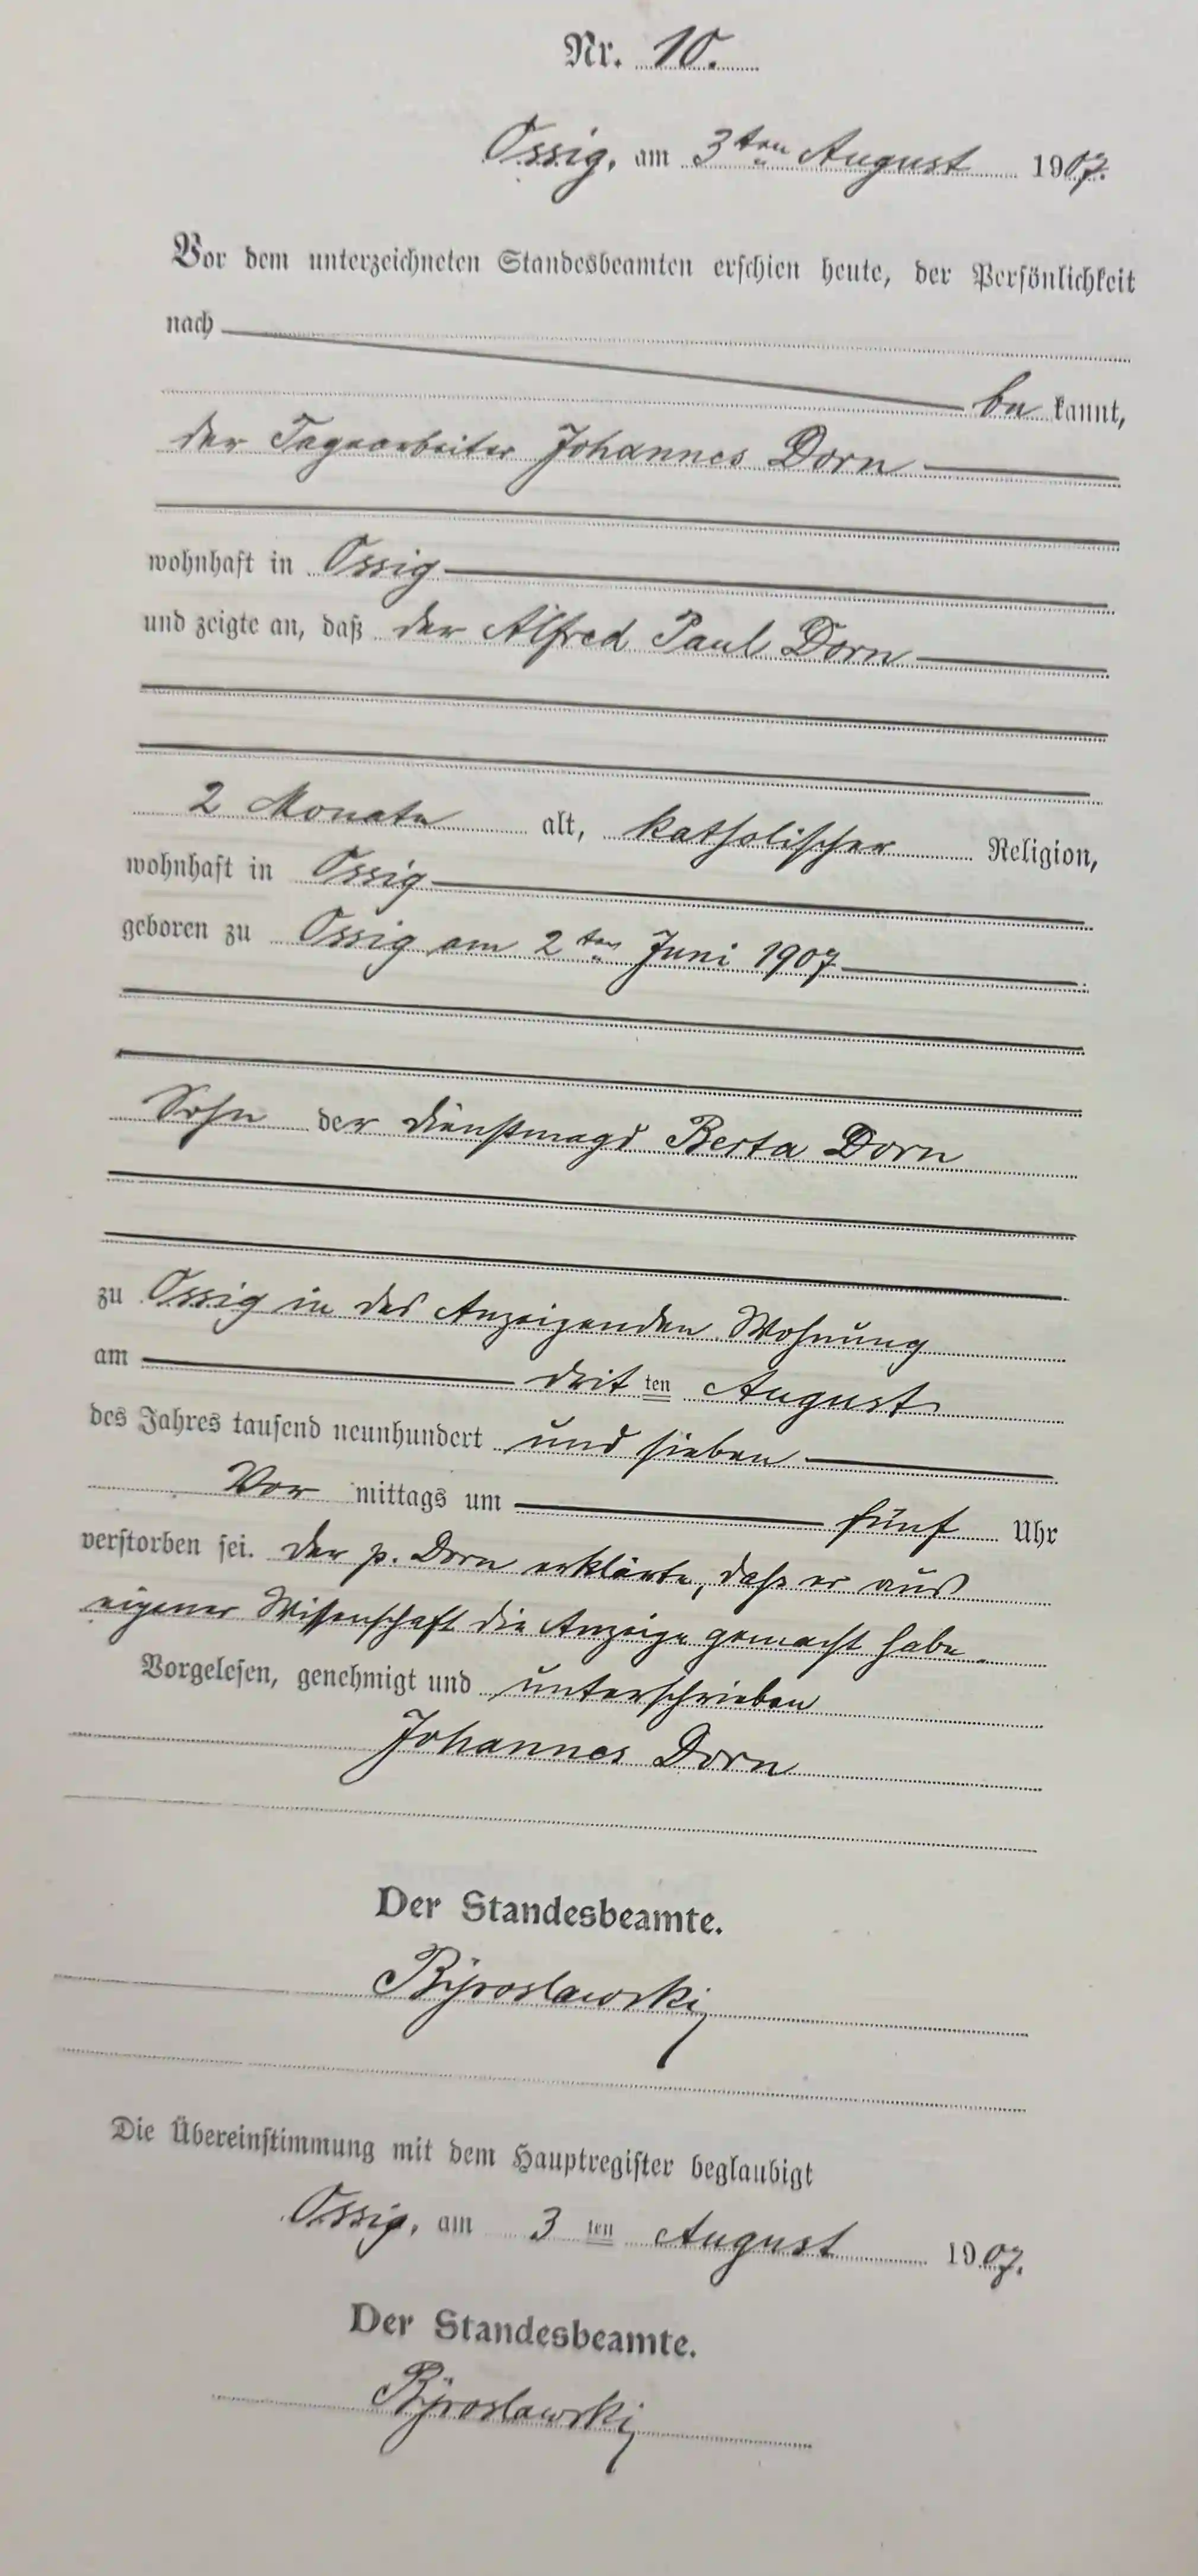 Nr. 10.
Ossig, am 3ten August 1907.
Vor dem unterzeichneten Standesbeamten erschien heute, der Persönlichkeit
nach
be kannt,
der Tagearbeiter Johannes Dorn
wohnhaft in Ossig
und zeigte an, daß der Alfred Paul Dorn
2 Monate alt, katholischer Religion,
wohnhaft in Ossig
geboren zu Ossig am 2ten Juni 1907
Sohn der Dienstmagd Berta Dorn
zu Ossig in des Anzeigenden Wohnung
am dritten August
des Jahres tausend neunhundert und sieben
Vor mittags um fünf Uhr
verstorben sei. Der p. Dorn erklärte, daß er aus
eigener Wissenschaft die Anzeige gemacht habe.
Vorgelesen, genehmigt und unterschrieben
Johannes Dorn
Der Standesbeamte.
Die Übereinstimmung mit dem Hauptregister beglaubigt
Ossig, am 3 ten August 1907.
Der Standesbeamte.